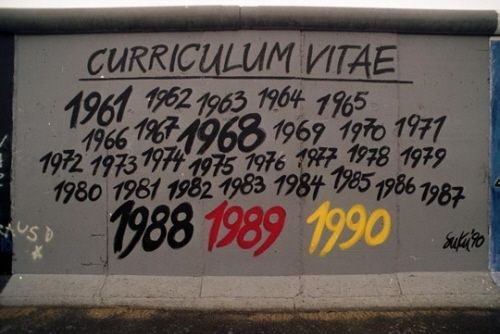 CURRICULUM VITAE
1961 1962 1963 1964 1965
1966 1967 1968 1969 1970 1971
1972 1973 1974 1975 1976 1977 1978 1979
1980 1981 1982 1983 1984 1985 1986 1987
1988 1989 1990
Suku '90